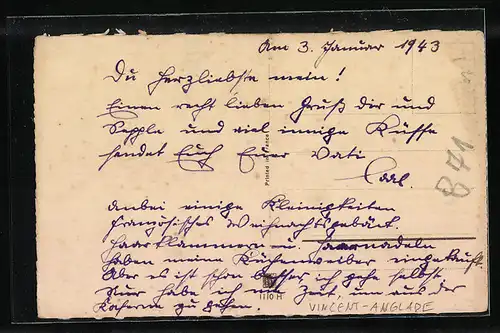 Am 3. Januar 1943
Du herzliebste mein!
Einen recht lieben Gruß dir und
Seppla und viel innige Küsse
sendet Euch Euer Vati
Carl.
Printed in France
871
anbei einige Kleinigkeiten
französisches Weihnachtsgebäck.
Haarklammern u. Haarnadeln
haben meine Küchenweiber eingekauft
Aber es ist schon besser ich gehe selbst
Nur habe ich nie Zeit, um aus der
Kaserne zu gehen.
1110 H
VINCENT-ANGLADE